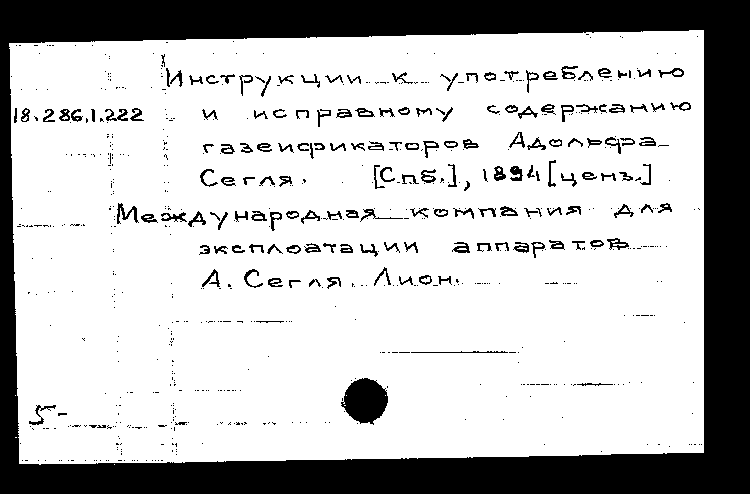 Инструкции к употреблению
18.286.1.222 и исправному содержанию
газеификаторов Адольфа
Сегля. [Спб.], 1894 [ценз.]
Международная компания для
эксплоатации аппаратов
А. Сегля. Лион.
5-